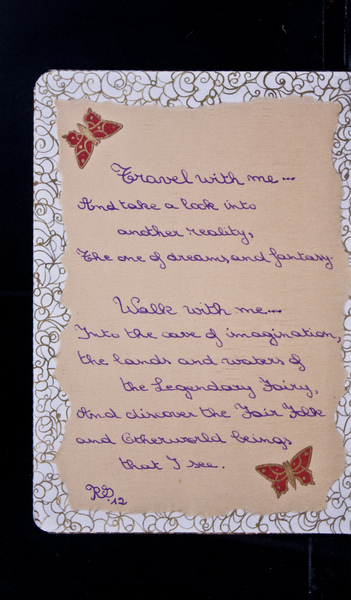 Travel with me...
And take a look into
another reality,
The one of dreams and fantasy.
Walk with me...
Into the cave of imagination,
the lands and waters of
the Legendary Fairy,
And discover the Fair Folk
and Otherworld beings
that I see.
RS.12